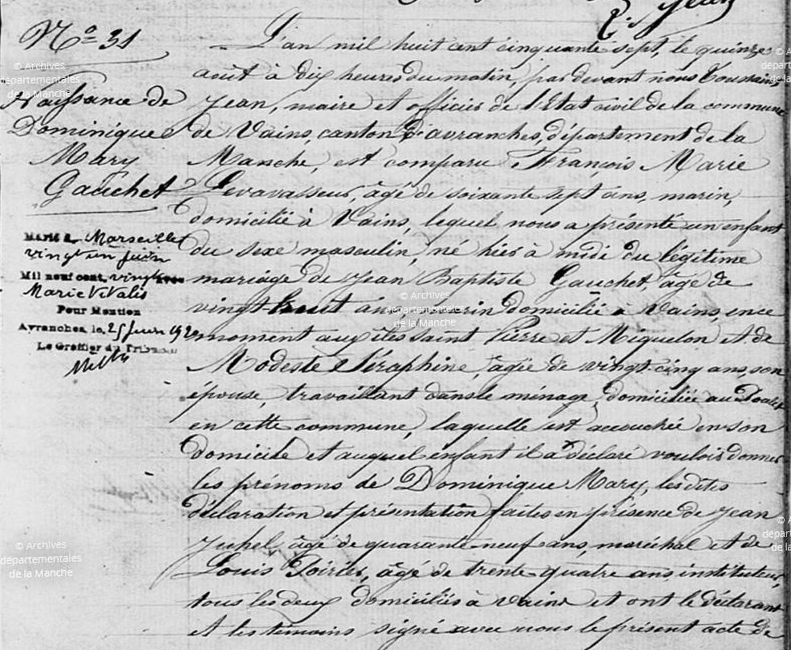 N° 31
Naissance de
Dominique
Mary
Gauchet
Marié à Marseille
vingt un juin
Mil neuf cent vingt
Marie Vitalis
Pour Mention
Avranches, le 25 juin 192
Le Greffier du Tribunal
L'an mil huit cent cinquante sept, le quinze
août à dix heures du matin, par devant nous Toussaint
Jean, maire et officier de l'Etat civil de la commune
de Vains, canton d'avranches, département de la
Manche, est comparu François Marie
Levavasseur, âgé de soixante sept ans, marin,
domicilié à Vains, lequel nous a présenté un enfant
du sexe masculin, né hier à midi du légitime
mariage de Jean Baptiste Gauchet, âgé de
vingt huit ans, marin domicilié à Vains, en ce
moment aux îles Saint Pierre et Miquelon et de
Modeste Séraphine, âgée de vingt cinq ans, son
épouse, travaillant dans le ménage, domiciliée au
en cette commune, laquelle est accouchée en son
domicile et auquel enfant il a déclaré vouloir donner
les prénoms de Dominique Mary, les dites
déclaration et présentation faites en présence de Jean
Juhel, âgé de quarante neuf ans, maréchal et de
Louis Poirier, âgé de trente quatre ans, instituteur,
tous les deux domiciliés à Vains et ont le déclarant
et les témoins signé avec nous le présent acte de
© Archives
départementales
de la Manche